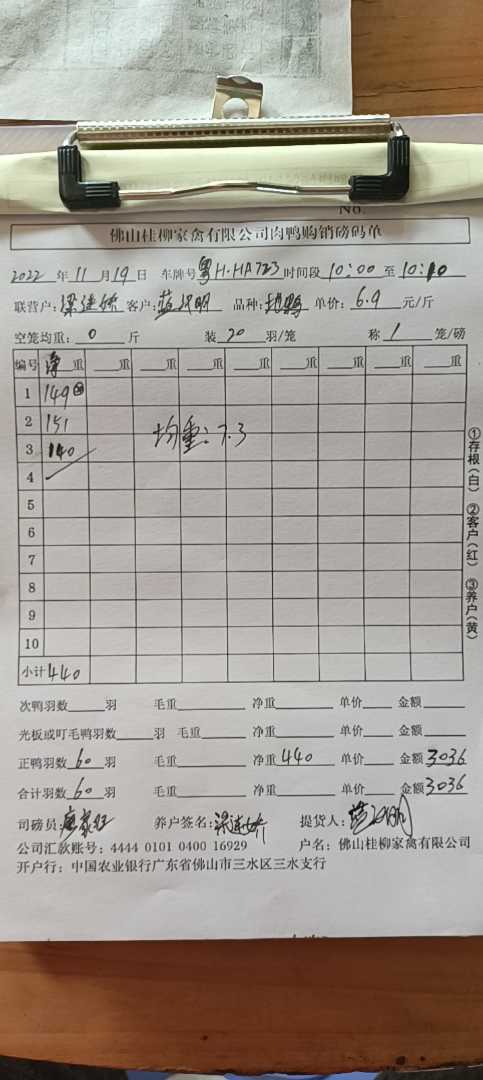 No.
佛山桂柳家禽有限公司肉鸭购销磅码单
2022年11月19日 车牌号粤H·HA723时间段10:00至10:10
联营户: 客户: 品种: 单价:6.9元/斤
空笼均重:0斤 装20羽/笼 称1笼/磅
编号 净重 重 重 重 重 重 重 重
1 149
2 151
3 140 均重:7.3
4
5
6
7
8
9
10
小计 440
①存根(白) ②客户(红) ③养户(黄)
次鸭羽数 羽 毛重 净重 单价 金额
光板或叮毛鸭羽数 羽 毛重 净重 单价 金额
正鸭羽数60羽 毛重 净重440 单价 金额3036
合计羽数60羽 毛重 净重 单价 金额3036
司磅员: 养户签名: 提货人:
公司汇款账号:4444 0101 0400 16929 户名:佛山桂柳家禽有限公司
开户行:中国农业银行广东省佛山市三水区三水支行